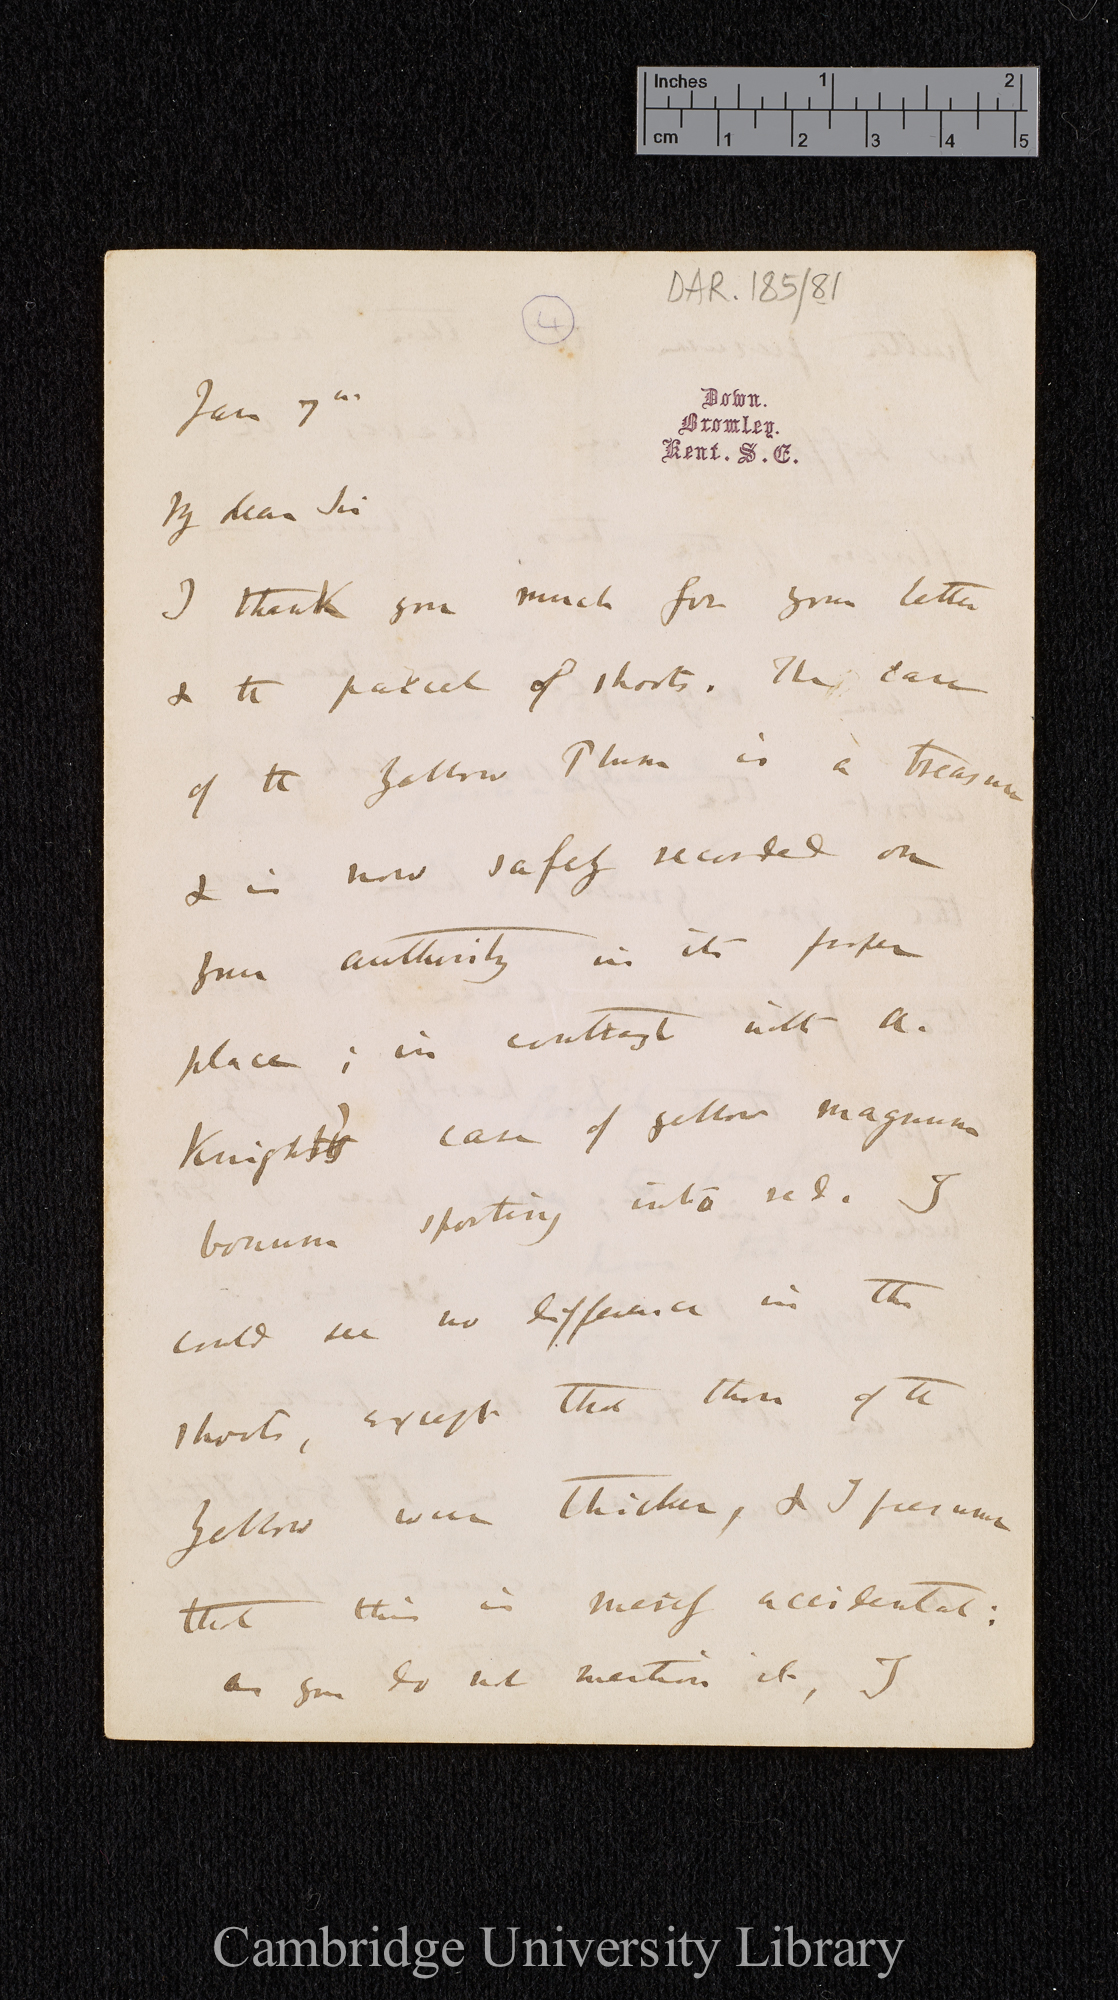 Inches 1 2
cm 1 2 3 4 5
DAR. 185/81
4
Down.
Bromley.
Kent. S.E.
Jan 7th
My dear Sir
I thank you much for your letter
& the parcel of shoots. The case
of the yellow Plum is a treasure
& is now safely recorded on
your authority in its proper
place; in contrast with A.
Knight's case of yellow magnum
bonum sporting into red. I
could see no difference in the
shoots, except that those of the
yellow were thicker, & I presume
that this is merely accidental:
as you do not mention it, I
Cambridge University Library